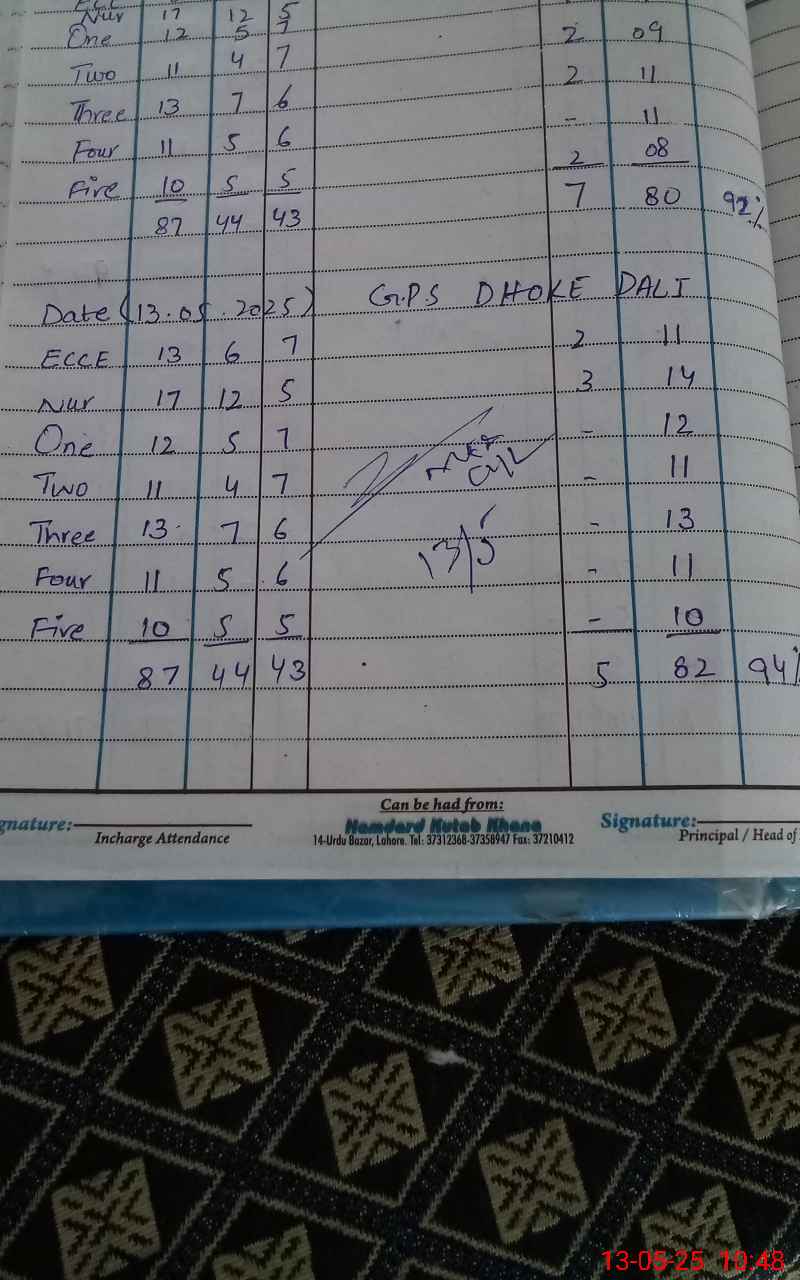 Nur 17 12 5
One 12 5 7 2 09
Two 11 4 7 2 11
Three 13 7 6 - 11
Four 11 5 6 2 08
Five 10 5 5 7 80 92%
87 44 43
Date (13.05.2025) G.P.S DHOKE DALI
ECCE 13 6 7 2 11
Nur 17 12 5 3 14
One 12 5 7 - 12
Two 11 4 7 - 11
Three 13 7 6 - 13
Four 11 5 6 - 11
Five 10 5 5 - 10
87 44 43 5 82 94%
13/5
Can be had from:
gnature: Hamdard Kutab Khana Signature:
Incharge Attendance 14-Urdu Bazar, Lahore. Tel: 37312368-37358947 Fax: 37210412 Principal / Head of
13-05-25 10:48